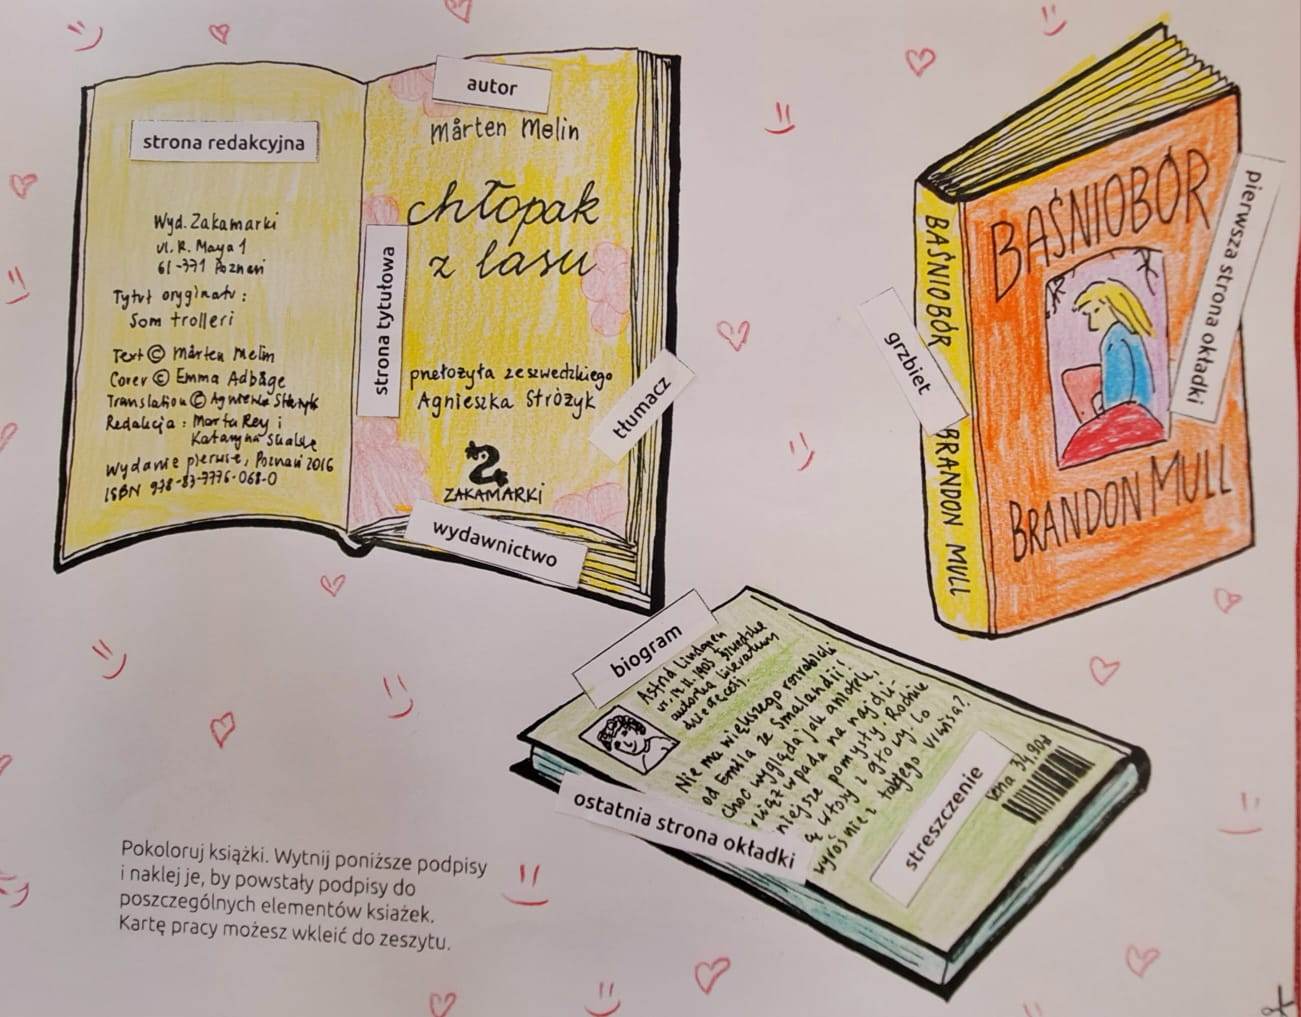 strona redakcyjna
Wyd. Zakamarki
ul. K. Maya 1
61-371 Poznań
Tytuł oryginału:
Som trolleri
Text © Mårten Melin
Cover © Emma Adbåge
Translation © Agnieszka Stróżyk
Redakcja: Marta Rey i
Katarzyna Skalska
Wydanie pierwsze, Poznań 2016
ISBN 978-83-7776-068-0
autor
Mårten Melin
chłopak
z lasu
strona tytułowa
przełożyła ze szwedzkiego
Agnieszka Stróżyk
tłumacz
ZAKAMARKI
wydawnictwo
BAŚNIOBÓR
BRANDON MULL
grzbiet
BAŚNIOBÓR
BRANDON MULL
pierwsza strona okładki
biogram
Astrid Lindgren
ur. 14.11.1903 szwedzka
autorka literatury
dziecięcej.
Nie ma większego rozrabiaki
od Emila ze Smalandii!
Choć wygląda jak aniołek,
wciąż wpada na najdzi-
niejsze pomysły. Rodzice
ą włosy z głowy. Co
wyrośnie z takiego urwisa?
ostatnia strona okładki
streszczenie
Cena 34,90zł
Pokoloruj książki. Wytnij poniższe podpisy
i naklej je, by powstały podpisy do
poszczególnych elementów ksiażek.
Kartę pracy możesz wkleić do zeszytu.